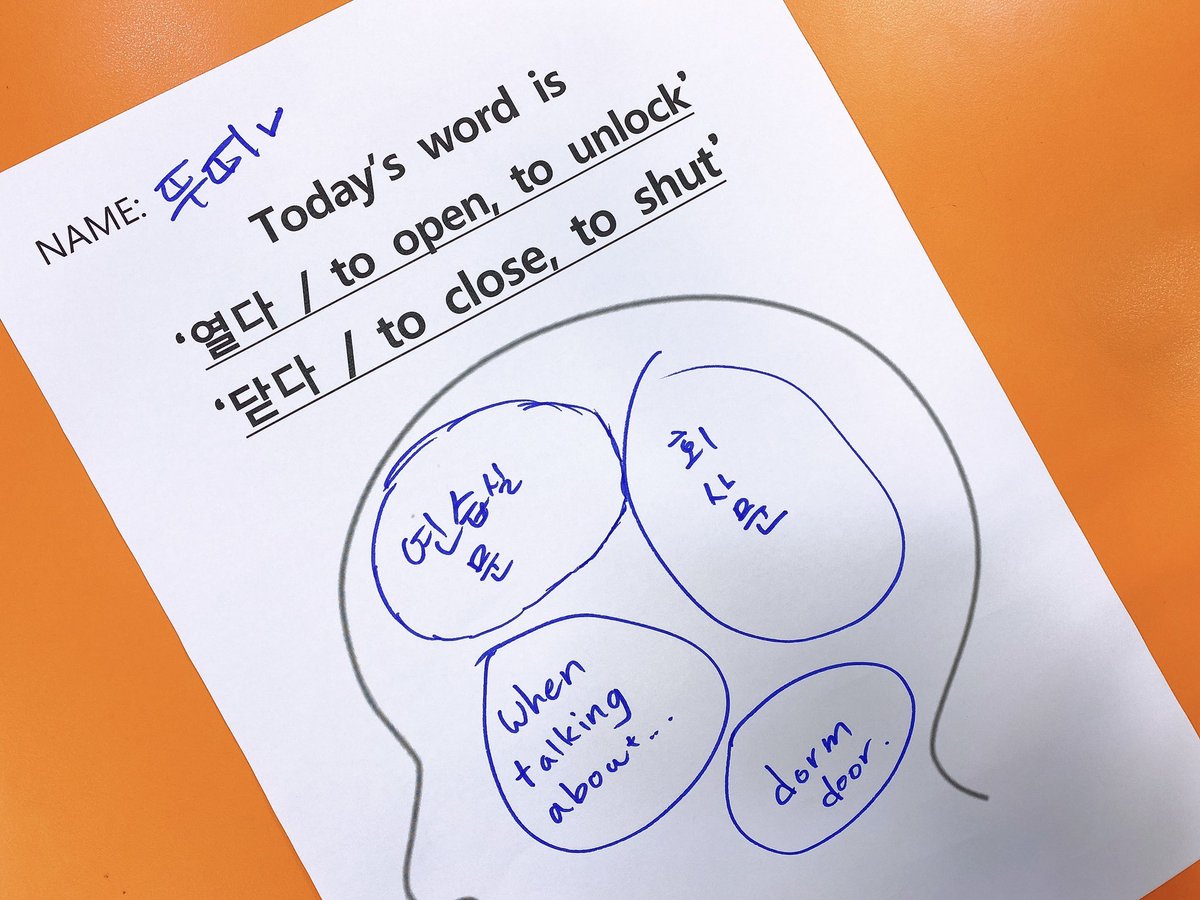 NAME: 뚜삐✓
Today's word is
‘열다 / to open, to unlock’
‘닫다 / to close, to shut’
연습실
문
회
사
문
When
talking
about...
dorm
door.